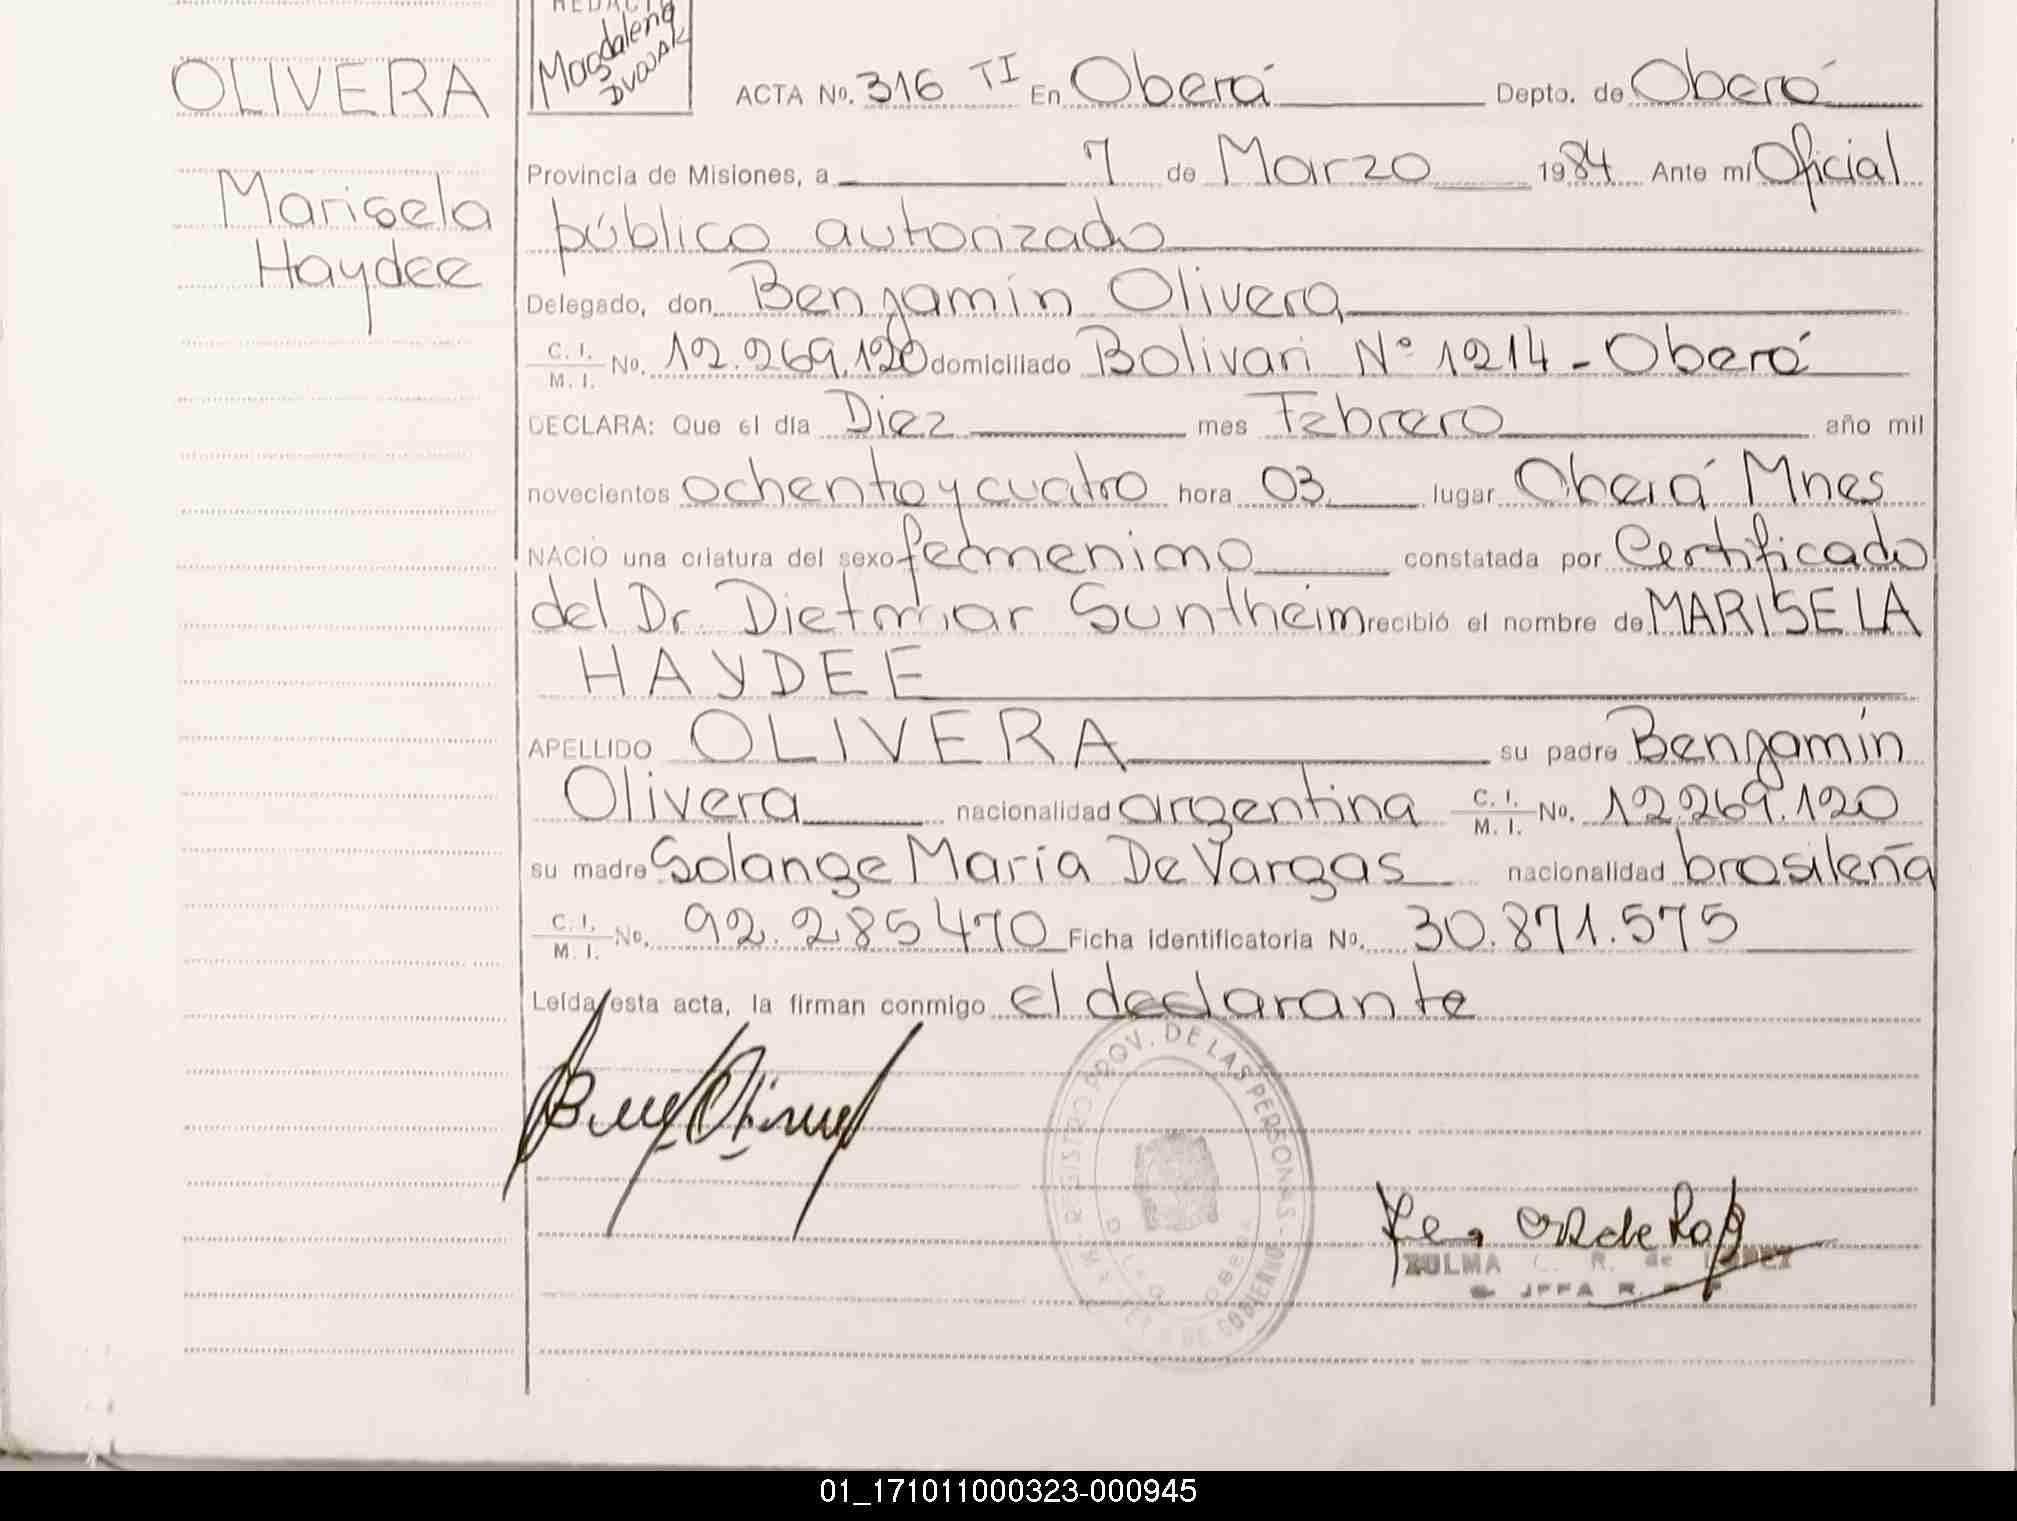 REDACTO
Magdalena
Dvorak
OLIVERA
Marisela
Haydee
ACTA No. 316 TI En Oberá Depto. de Oberá
Provincia de Misiones, a 7 de Marzo 1984 Ante mí Oficial
público autorizado
Delegado, don Benjamín Olivera
C. I. M. I. No. 12.269.120 domiciliado Bolivari N° 1214 - Oberá
DECLARA: Que el día Diez mes Febrero año mil
novecientos ochenta y cuatro hora 03 lugar Oberá Mnes
NACIO una criatura del sexo femenino constatada por Certificado
del Dr. Dietmar Suntheim recibió el nombre de MARISELA
HAYDEE
APELLIDO OLIVERA su padre Benjamín
Olivera nacionalidad argentina C. I. M. I. No. 12.269.120
su madre Solange María De Vargas nacionalidad brasileña
C. I. M. I. No. 92.285470 Ficha identificatoria No. 30.871.575
Leída esta acta, la firman conmigo el declarante
REGISTRO PROV. DE LAS PERSONAS
DE GOBIERNO
OBERA
ZULMA C. R. de LOPEZ
JEFA R.
01_171011000323-000945